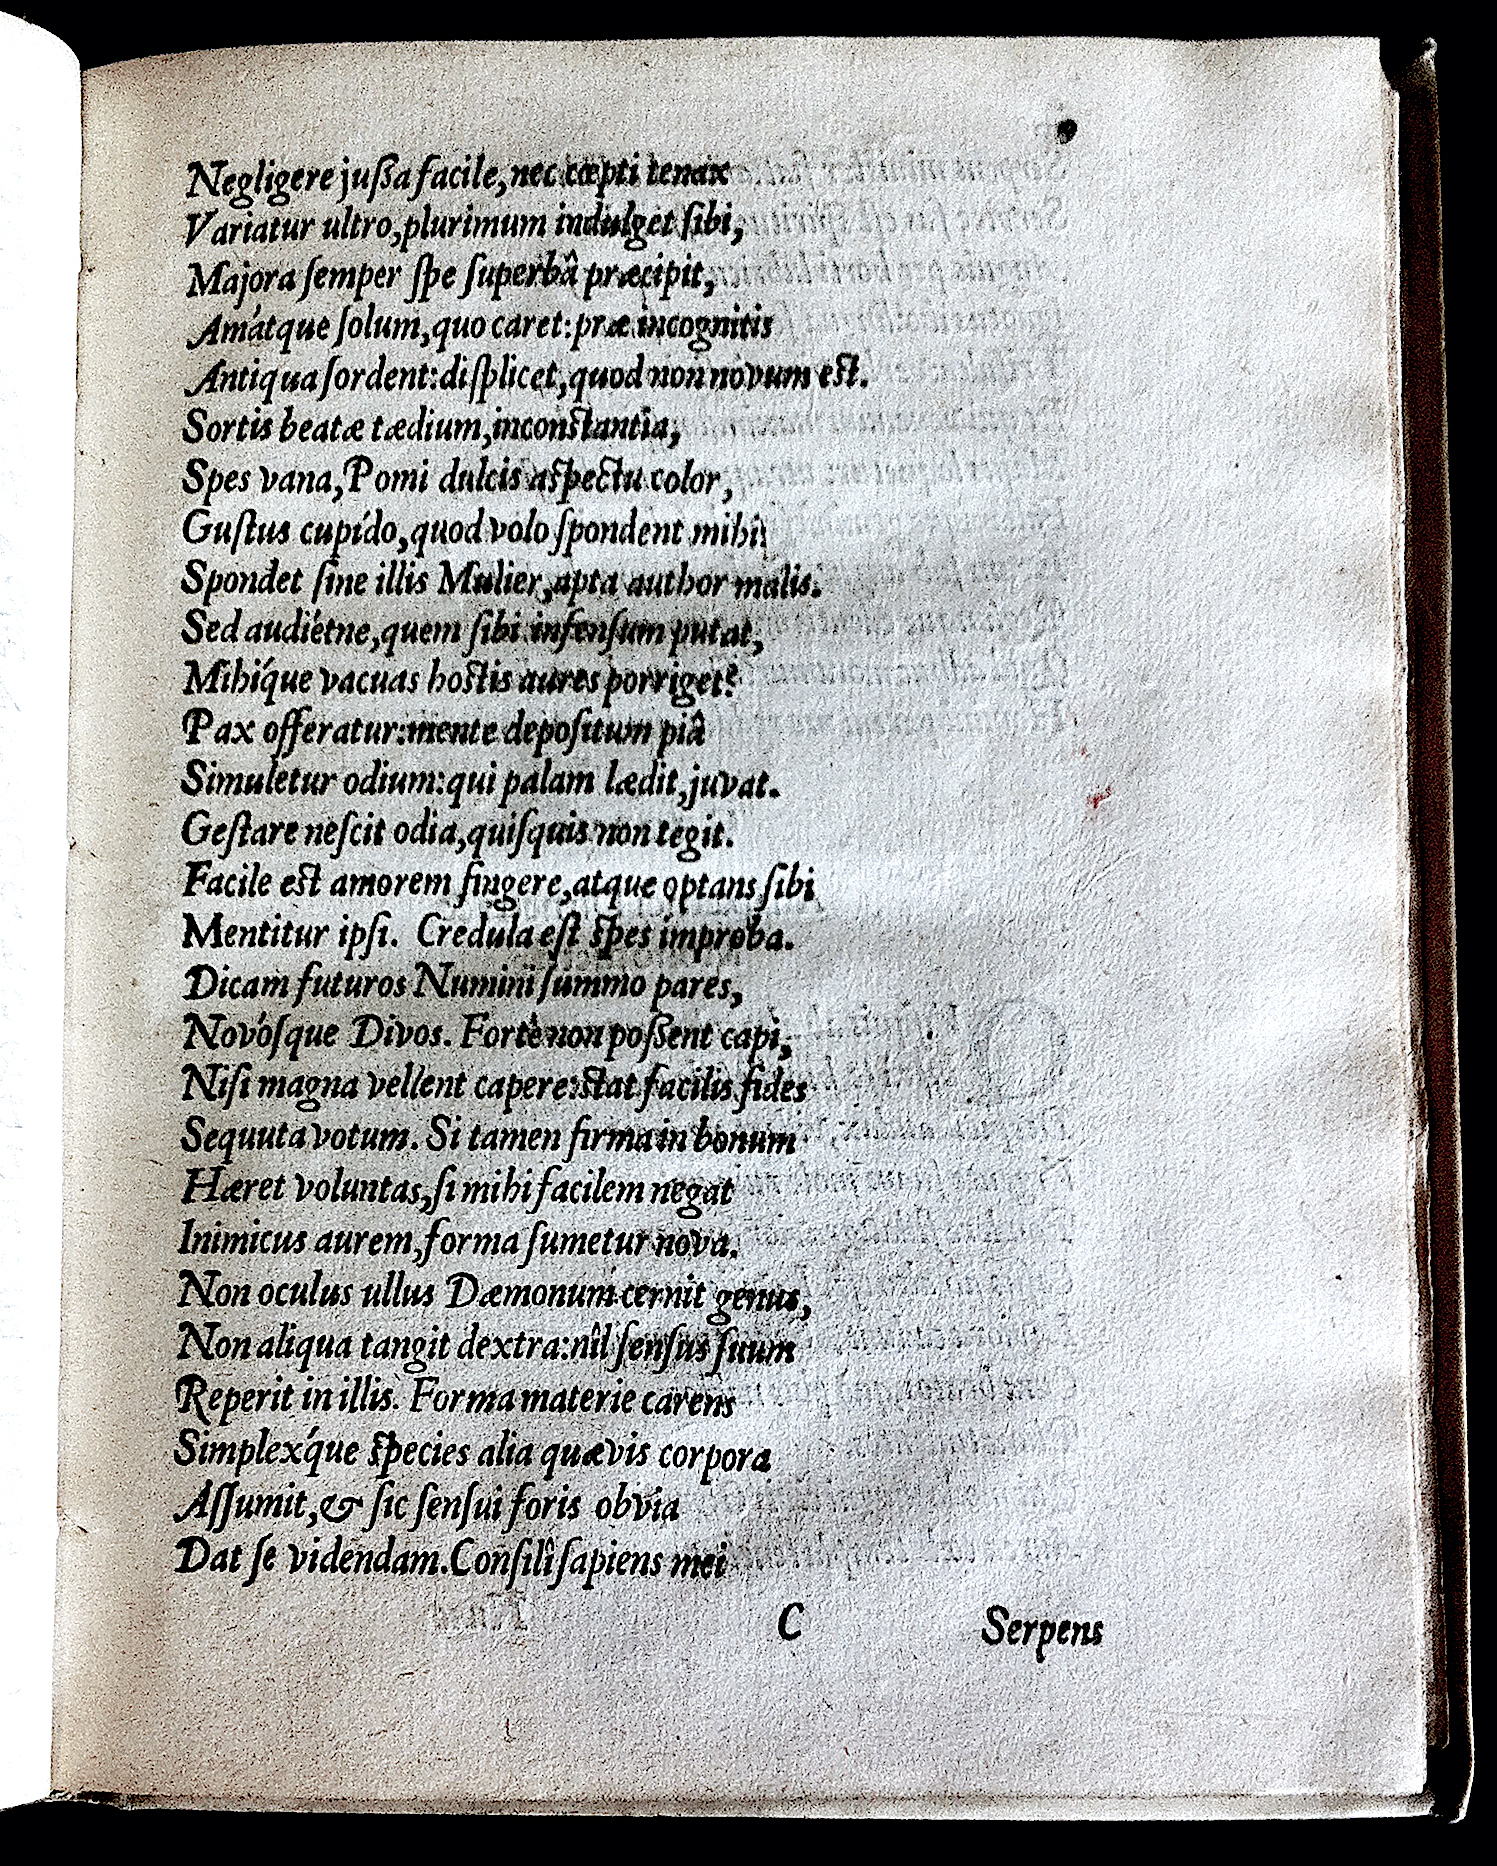 Negligere juſſa facile, nec cœpti tenax
Variatur ultro, plurimum indulget ſibi,
Majora ſemper ſpe ſuperbâ præcipit,
Amátque ſolum, quo caret: præ incognitis
Antiqua ſordent: diſplicet, quod non novum est.
Sortis beatæ tædium, inconstantia,
Spes vana, Pomi dulcis aspectu color,
Guſtus cupído, quod volo ſpondent mihi
Spondet ſine illis Mulier, apta author malis.
Sed audiétne, quem ſibi infenſum putat,
Mihíque vacuas hostis aures porriget?
Pax offeratur: mente depoſitum piâ
Simuletur odium: qui palam lædit, juvat.
Geſtare neſcit odia, quiſquis non tegit.
Facile est amorem fingere, atque optans ſibi
Mentitur ipſi. Credula eſt spes improba.
Dicam futuros Numini ſummo pares,
Novóſque Divos. Fortè non poſſent capi,
Niſi magna vellent capere: stat facilis fides
Sequuta votum. Si tamen firma in bonum
Hæret voluntas, ſi mihi facilem negat
Inimicus aurem, forma ſumetur nova.
Non oculus ullus Dæmonum cernit genus,
Non aliqua tangit dextra: nîl ſenſus ſuum
Reperit in illis. Forma materie carens
Simplex́que species alia quævis corpora
Aſſumit, & ſic ſenſui foris obvia
Dat ſé videndam. Conſilî ſapiens mei
C Serpens